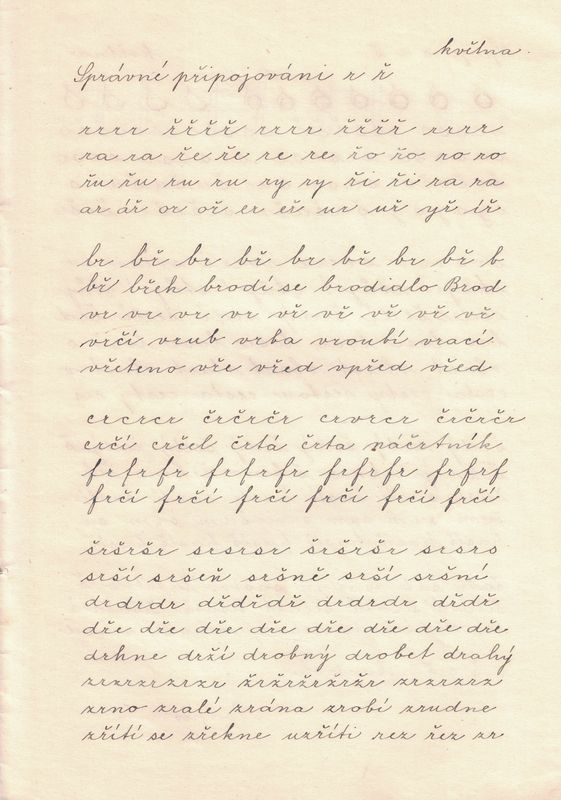 května.
Správné připojováni r ř
rrrr řřřř rrrr řřřř rrrr
ra ra ře ře re re řo řo ro ro
řu řu ru ru ry ry ři ři ra ra
ar ář or oř er eř ur uř yř íř
br bř br bř br bř br bř b
bř břeh brodí se brodidlo Brod
vr vr vr vr vř vř vř vř vř
vrčí vrub vrba vroubí vrací
vřeteno vře vřed vpřed vřed
crcrcr črčrčr crvrcr črčrčr
crčí crčel črtá črta náčrtník
frfrfr frfrfr frfrfr frfrf
frčí frčí frčí frčí frčí frčí
šršršr srsrsr šršršr srsrs
srší sršeň sršně srší sršní
drdrdr dřdřdř drdrdr dřdř
dře dře dře dře dře dře dře dře
drhne drží drobný drobet drahý
zrzrzrzrzr žržržržržr zrzrzrz
zrno zralé zrána zrobí zrudne
zřítí se zřekne uzříti rez řez zr